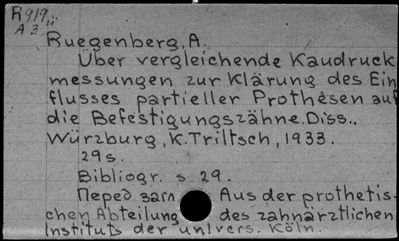 R919
A3
Ruegenberg, A.
Über vergleichende Kaudruck
messungen zur Klärung des Ein
flusses partieller Prothesen auf
die Befestigungszähne. Diss..
Würzburg, K. Triltsch, 1933.
29 s.
Bibliogr. s. 29.
Перед загл Aus der prothetis-
chen Abteilung des zahnärztlichen
Instituts der univers. Köln.